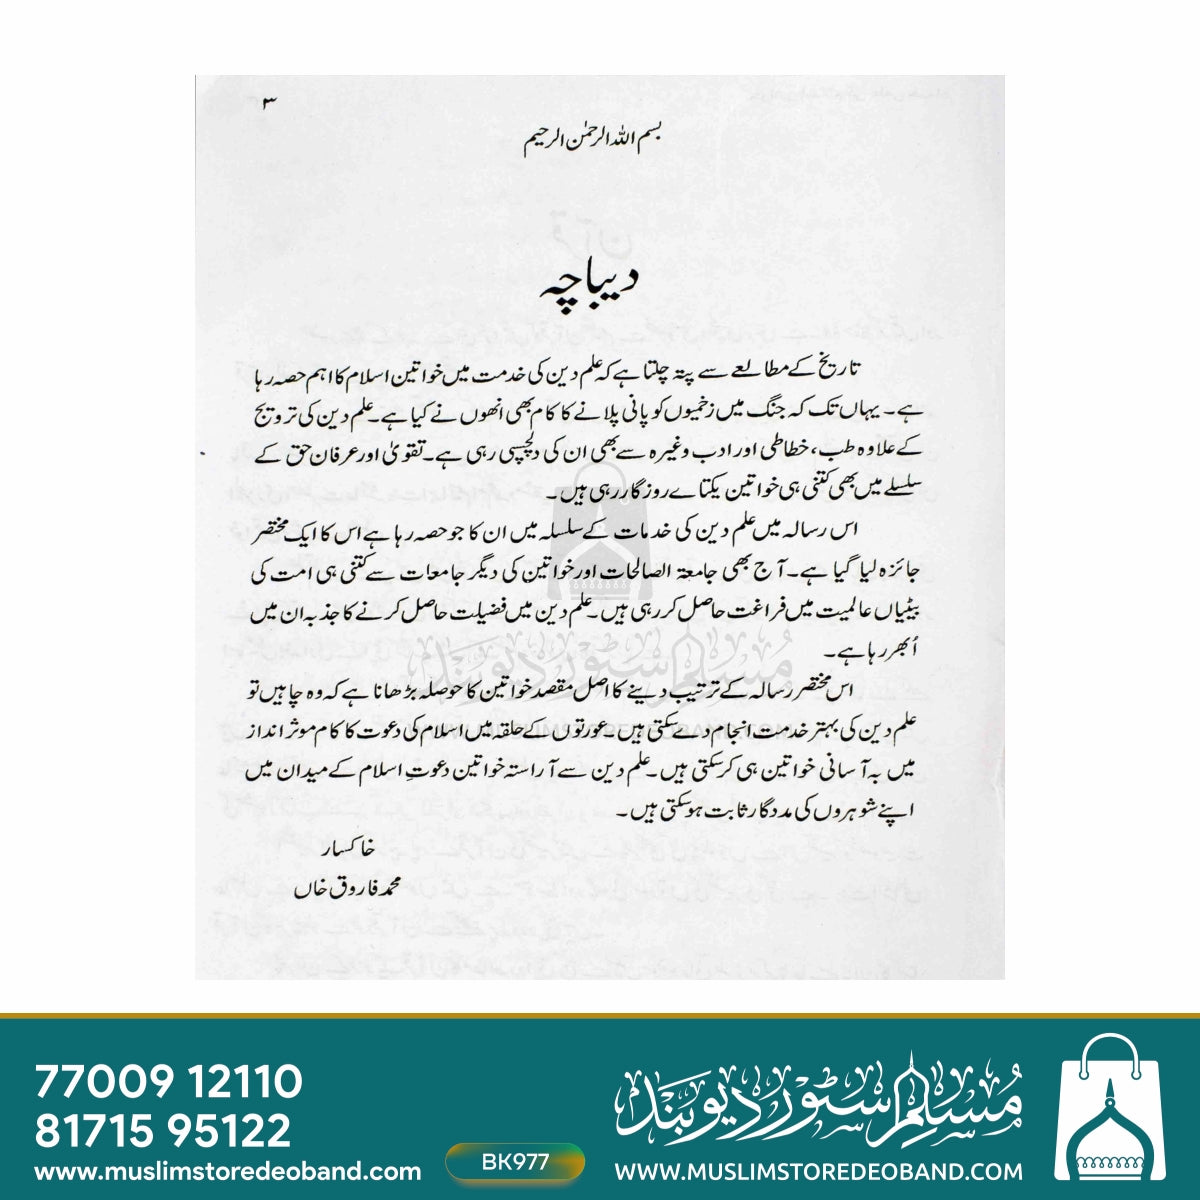 ۳
بسم اللہ الرحمٰن الرحیم
دیباچہ
تاریخ کے مطالعے سے پتہ چلتا ہے کہ علم دین کی خدمت میں خواتین اسلام کا اہم حصہ رہا
ہے۔ یہاں تک کہ جنگ میں زخمیوں کو پانی پلانے کا کام بھی انھوں نے کیا ہے۔ علم دین کی ترویج
کے علاوہ طب، خطاطی اور ادب وغیرہ سے بھی ان کی دلچسپی رہی ہے۔ تقویٰ اور عرفان حق کے
سلسلے میں بھی کتنی ہی خواتین یکتاے روزگار رہی ہیں۔
اس رسالہ میں علم دین کی خدمات کے سلسلہ میں ان کا جو حصہ رہا ہے اس کا ایک مختصر
جائزہ لیا گیا ہے۔ آج بھی جامعۃ الصالحات اور خواتین کی دیگر جامعات سے کتنی ہی امت کی
بیٹیاں عالمیت میں فراغت حاصل کر رہی ہیں۔ علم دین میں فضیلت حاصل کرنے کا جذبہ ان میں
اُبھر رہا ہے۔
اس مختصر رسالہ کے ترتیب دینے کا اصل مقصد خواتین کا حوصلہ بڑھانا ہے کہ وہ چاہیں تو
علم دین کی بہتر خدمت انجام دے سکتی ہیں۔ عورتوں کے حلقہ میں اسلام کی دعوت کا کام موثر انداز
میں بہ آسانی خواتین ہی کر سکتی ہیں۔ علم دین سے آراستہ خواتین دعوتِ اسلام کے میدان میں
اپنے شوہروں کی مددگار ثابت ہو سکتی ہیں۔
خاکسار
محمد فاروق خاں
مسلم سٹور دیوبند
77009 12110
81715 95122
www.muslimstoredeoband.com
BK977
مسلم سٹور دیوبند
WWW.MUSLIMSTOREDEOBAND.COM